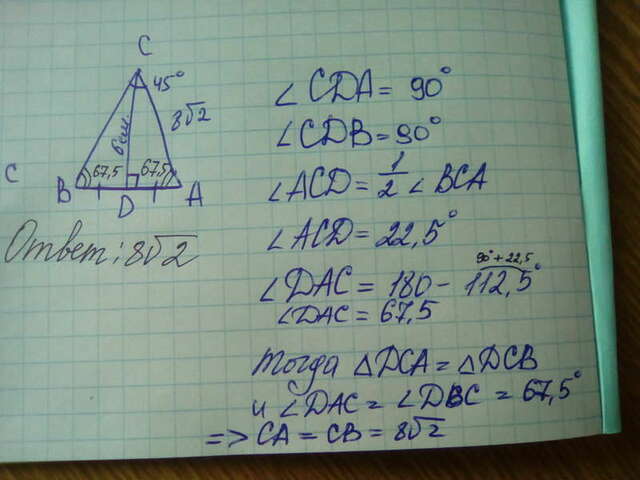 C
45°
8√2
6 см
67,5 67,5
B D A
C
Ответ: 8√2
∠CDA = 90°
∠CDB = 90°
∠ACD = 1/2 ∠BCA
∠ACD = 22,5°
90° + 22,5
∠DAC = 180 - 112,5°
∠DAC = 67,5
Тогда △DCA = △DCB
и ∠DAC = ∠DBC = 67,5°
=> CA = CB = 8√2